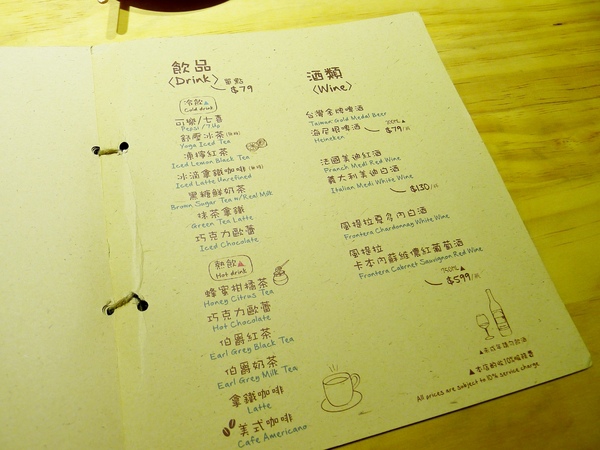 飲品
〈Drink〉 單點 $79
冷飲▲
Cold drink
可樂/七喜
Pepsi / 7up
舒壓冰茶
Yoga Iced Tea
凍檸紅茶
Iced Lemon Black Tea
冰滴拿鐵咖啡
Iced Latte Unrefined
黑糖鮮奶茶
Brown Sugar Tea w/Real Milk
抹茶拿鐵
Green Tea Latte
巧克力歐蕾
Iced Chocolate
熱飲▲
Hot drink
蜂蜜柑橘茶
Honey Citrus Tea
巧克力歐蕾
Hot Chocolate
伯爵紅茶
Earl Grey Black Tea
伯爵奶茶
Earl Grey Milk Tea
拿鐵咖啡
Latte
美式咖啡
Cafe Americano
酒類
〈Wine〉
台灣金牌啤酒
Taiwan Gold Medal Beer
海尼根啤酒
Heineken
$79/
法國美迪紅酒
French Medi Red Wine
義大利美迪白酒
Italian Medi White Wine
$130/
風提拉夏多內白酒
Frontera Chardonnay White Wine
風提拉
卡本內蘇維儂紅葡萄酒
Frontera Cabernet Sauvignon Red Wine
$599/
▲未成年請勿飲酒
▲本店酌收10%服務費
All prices are subject to 10% service charge